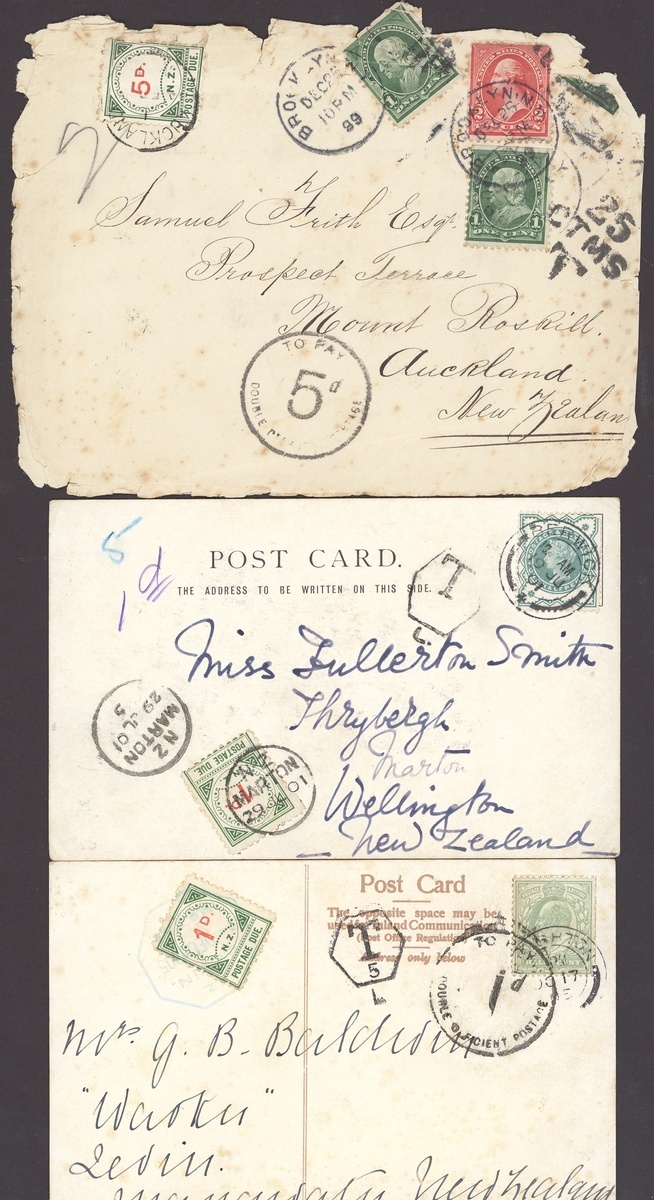 5D.
N.Z.
POSTAGE DUE.
BROOKLYN, N.
DEC 26
10 PM
99
ONE CENT
2 CENTS 2
1 ONE CENT 1
25
CTMS
T
Samuel Frith Esqr.
Prospect Terrace
Mount Roskill.
Auckland.
New Zealan
TO PAY
5d
DOUBLE
5
1d
POST CARD.
THE ADDRESS TO BE WRITTEN ON THIS SIDE.
T
L
Miss Fullerton Smith
Thrybergh
Marton
Wellington
New Zealand
N.Z
MARTON
29 JL 01
5
POSTAGE DUE
Post Card
The opposite space may be
used for Inland Communication
(Post Office Regulation
Address only below
1D.
N.Z.
POSTAGE DUE.
T
5
L
TO PAY
1d
DOUBLE DEFICIENT POSTAGE
Mrs G. B. Baldwin
Levin.
New Zealand